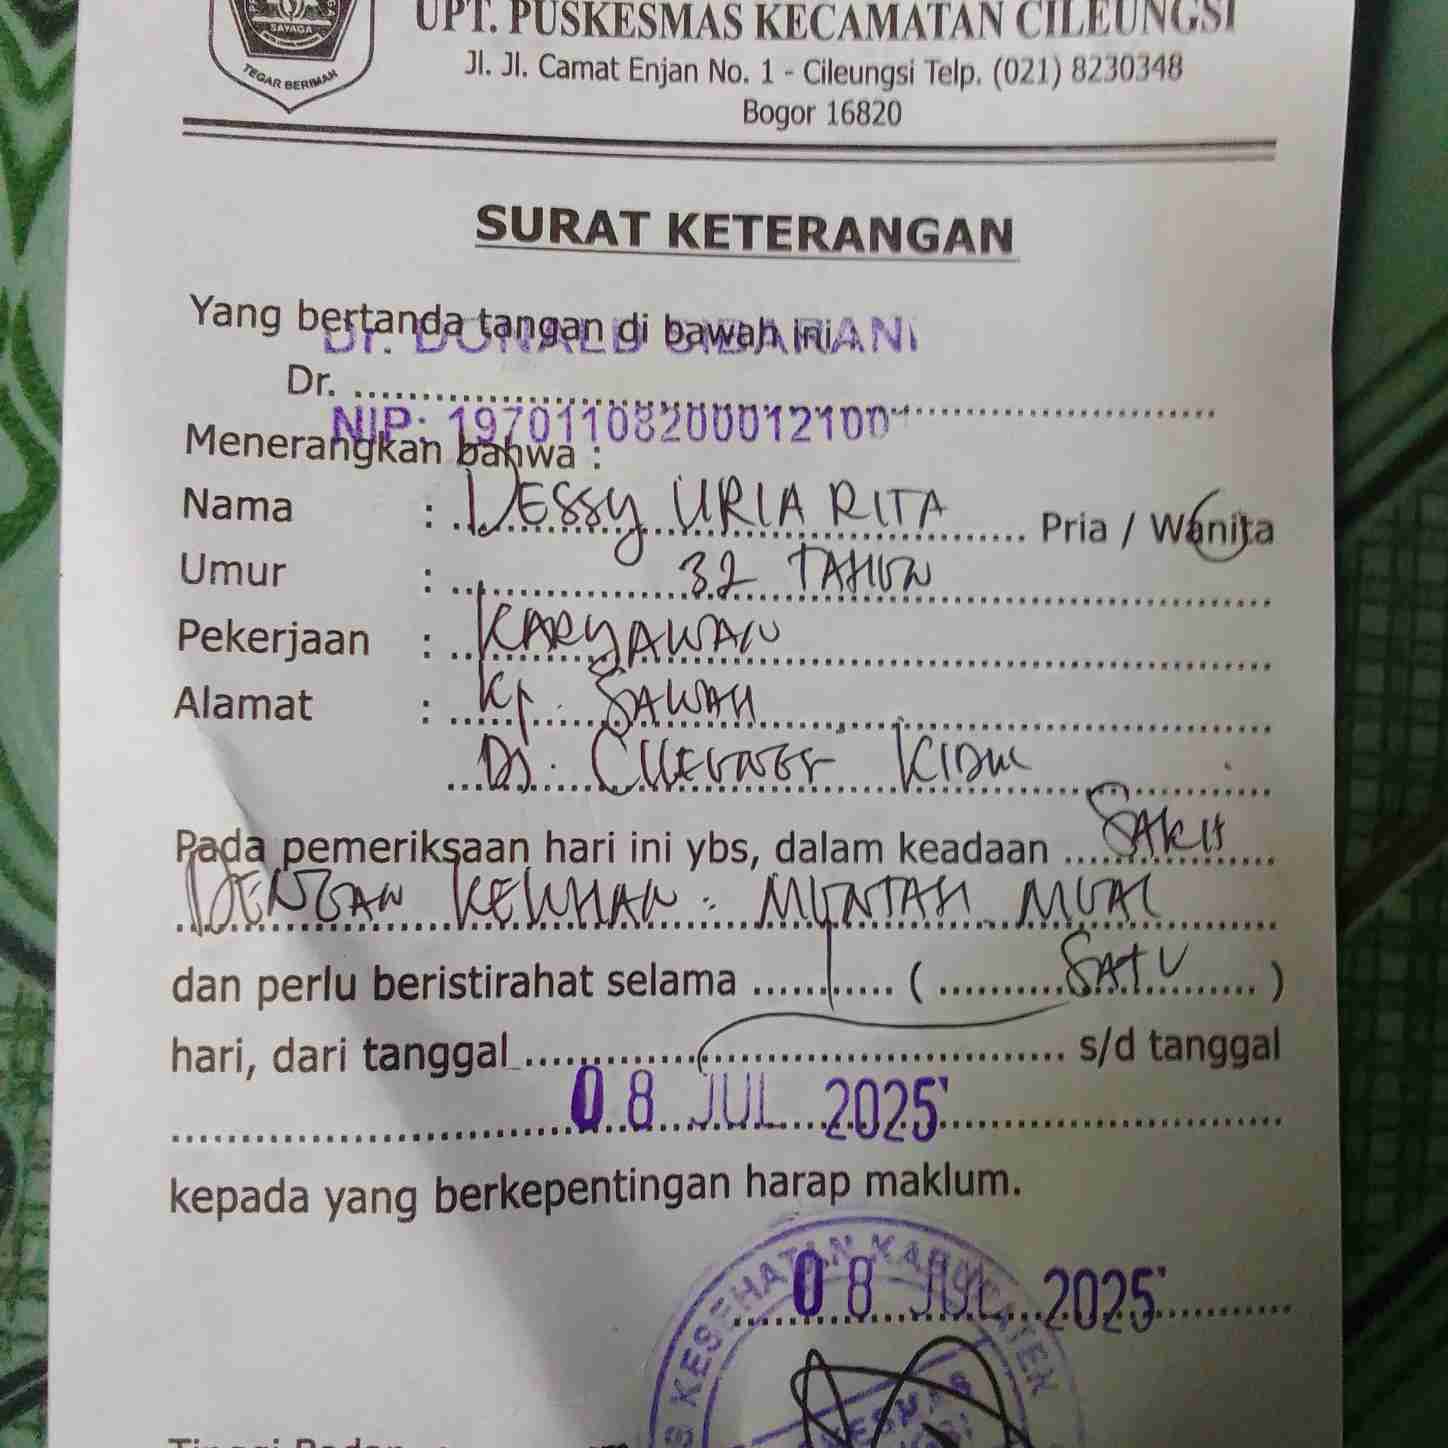 SAYAGA
TEGAR BERIMAN
UPT. PUSKESMAS KECAMATAN CILEUNGSI
Jl. Jl. Camat Enjan No. 1 - Cileungsi Telp. (021) 8230348
Bogor 16820
SURAT KETERANGAN
Yang bertanda tangan di bawah ini
Dr. DONALD
Dr.
NIP: 197011082000121001
Menerangkan bahwa :
Nama : DESSY URIA RITA Pria / Wanita
Umur : 32 TAHUN
Pekerjaan : KARYAWAN
Alamat : Kp. SAWAH
Ds. CILEUNGSI KIDUL
Pada pemeriksaan hari ini ybs, dalam keadaan SAKIT
DENGAN KELUHAN : MUNTAH MUAL
dan perlu beristirahat selama 1 ( SATU )
hari, dari tanggal s/d tanggal
08 JUL 2025
kepada yang berkepentingan harap maklum.
KESEHATAN KABUPATEN
08 JUL 2025
Tinggi Badan